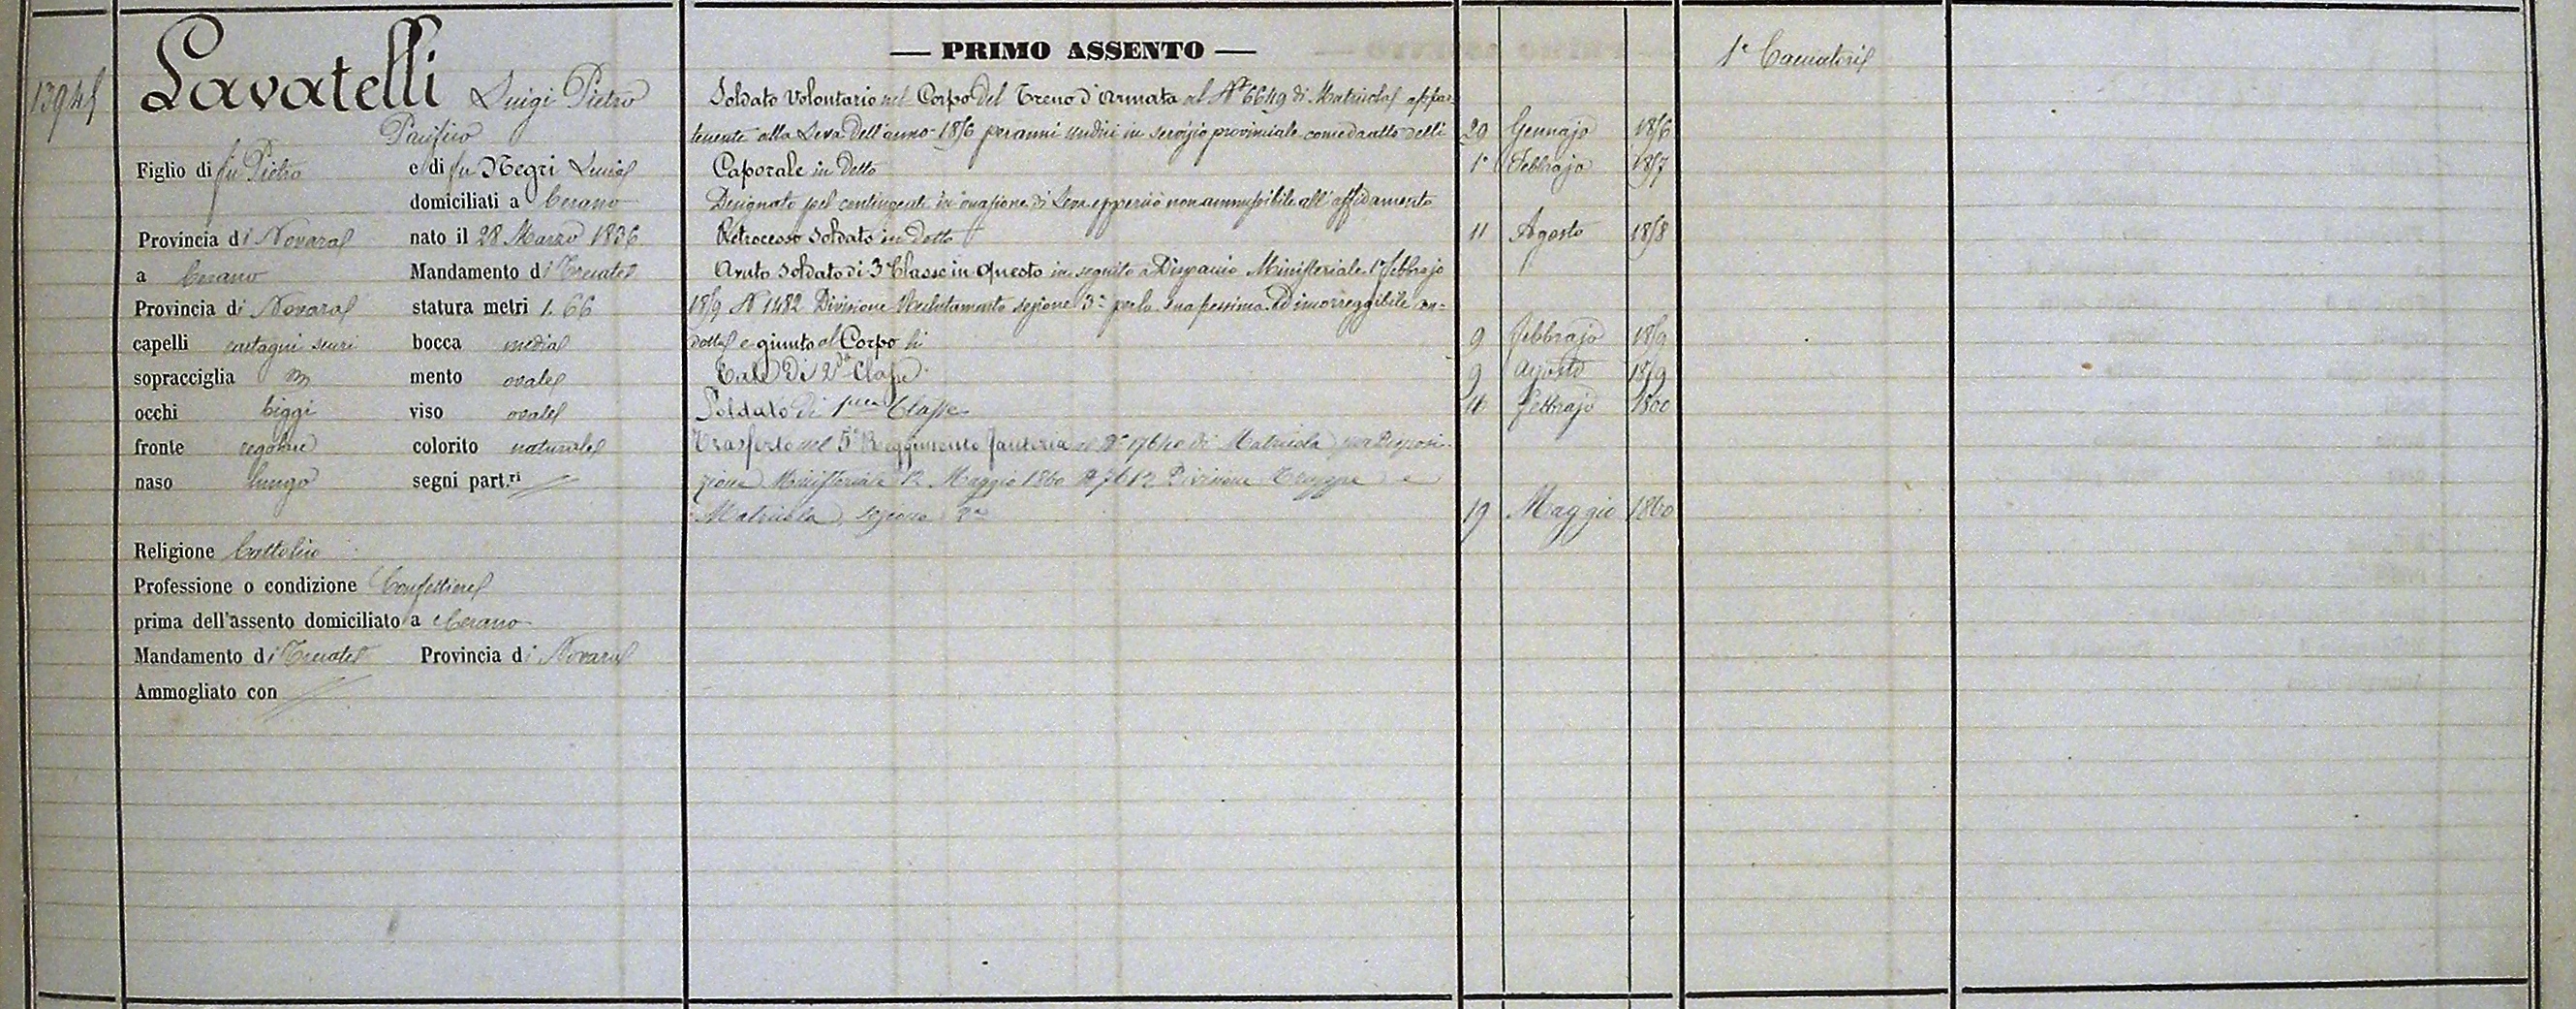 13945
Lavatelli Luigi Pietro
Pacifico
Figlio di fu Pietro e di fu Negri Luisa
domiciliati a Cerano
Provincia di Novara nato il 28 Marzo 1836
a Cerano Mandamento di Trecate
Provincia di Novara statura metri 1. 66
capelli castagni scuri bocca media
sopracciglia mento ovale
occhi biggi viso ovale
fronte regolare colorito naturale
naso lungo segni part.ri
Religione Cattolica
Professione o condizione Confettiere
prima dell'assento domiciliato a Cerano
Mandamento di Trecate Provincia di Novara
Ammogliato con
— PRIMO ASSENTO —
Soldato Volontario nel Corpo del Treno d'Armata al N° 6649 di Matricola appar-
tenente alla Leva dell'anno 1856 per anni undici in servizio provinciale come da atto delli 29 Gennajo 1856
Caporale in detto 1° Febbrajo 1857
Designato pel contingente in occasione di Leva epperciò non ammissibile all'affidamento
Retrocesso Soldato in detto 11 Agosto 1858
Avuto Soldato di 3a Classe in questo in seguito a Dispaccio Ministeriale 1° febbrajo
1859 N 1482 Divisione Reclutamento sezione 3a per la sua pessima ed incorreggibile con-
dotta e giunto al Corpo li 9 febbrajo 1859
Tale di 2da Classe 9 Agosto 1859
Soldato di 1ma Classe febbrajo 1860
Trasferto nel 5° Reggimento fanteria al N° 17640 di Matricola per Disposi-
zione Ministeriale 12 Maggio 1860 N 7612 Divisione Truppe e
Matricola, sezione 2a 19 Maggio 1860
1° Cacciatori